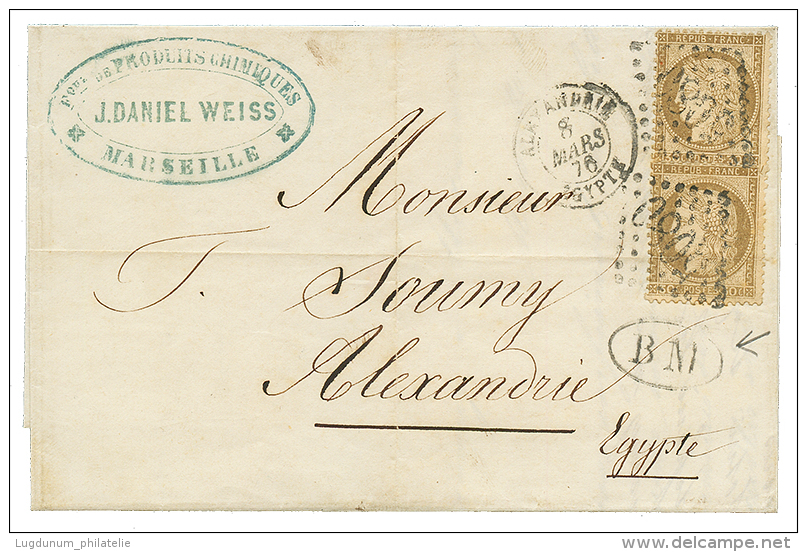 Fque DE PRODUITS CHIMIQUES
J. DANIEL WEISS
MARSEILLE
ALEXANDRIE
8
MARS
76
EGYPTE
REPUB. FRANC.
REPUB. FRANC.
POSTE
BM
Monsieur
T. Soumy
Alexandrie
Egypte
Lugdunum_philatelie
www.delcampe.net